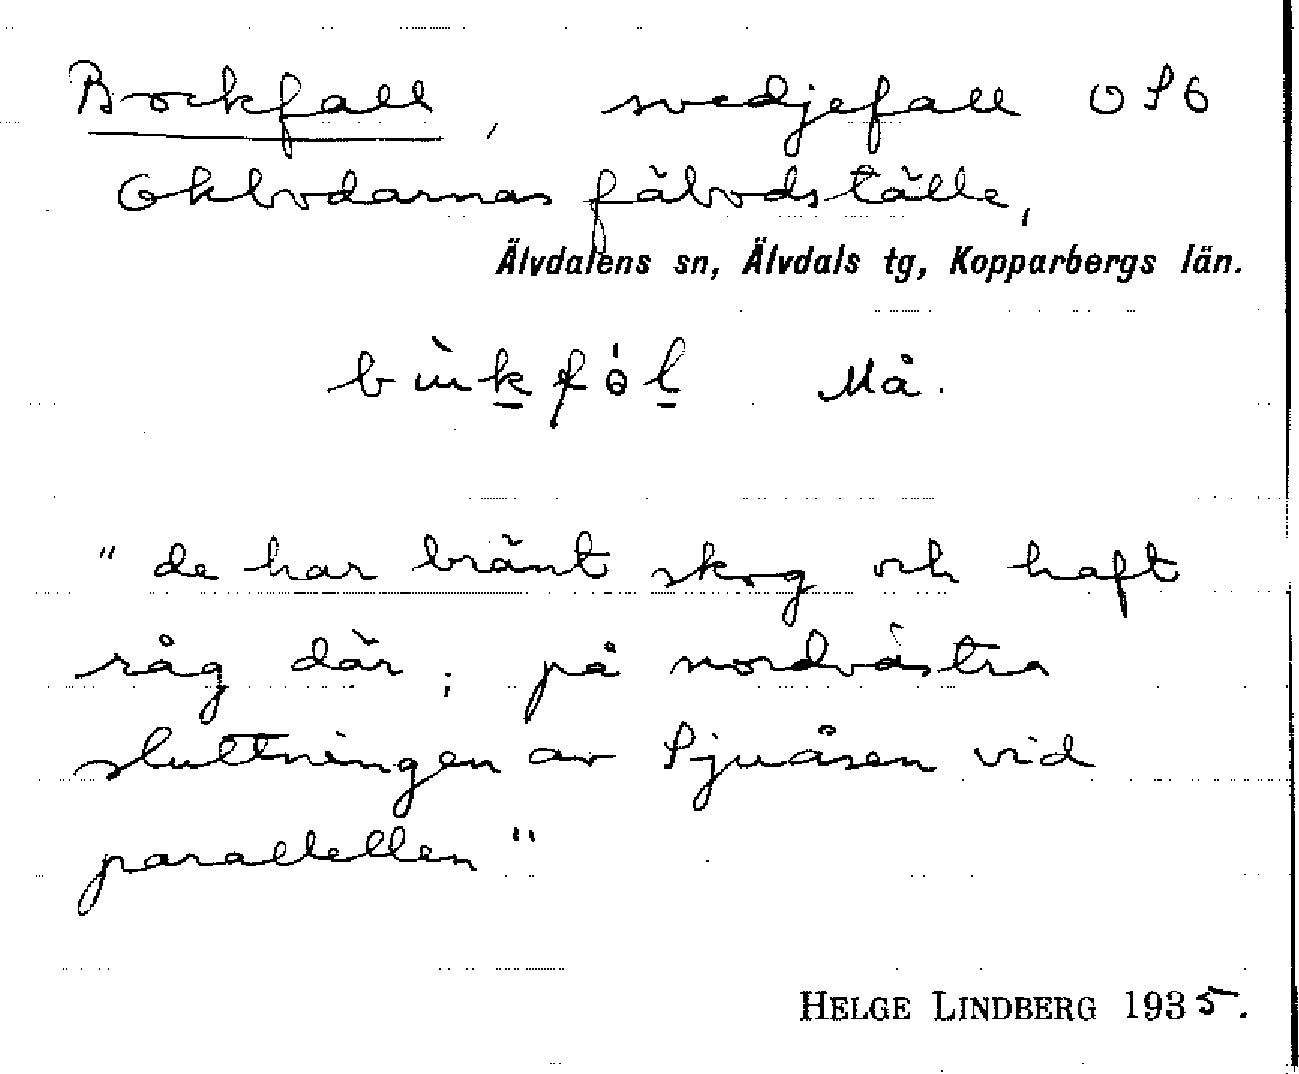 Bockfall, svedjefall OSO
Okbodarnas fäbodställe,
Älvdalens sn, Älvdals tg, Kopparbergs län.
Må.
"de har bränt skog och haft
råg där; på nordvästra
sluttningen av Sjuåsen vid
parallellen"
HELGE LINDBERG 1935.